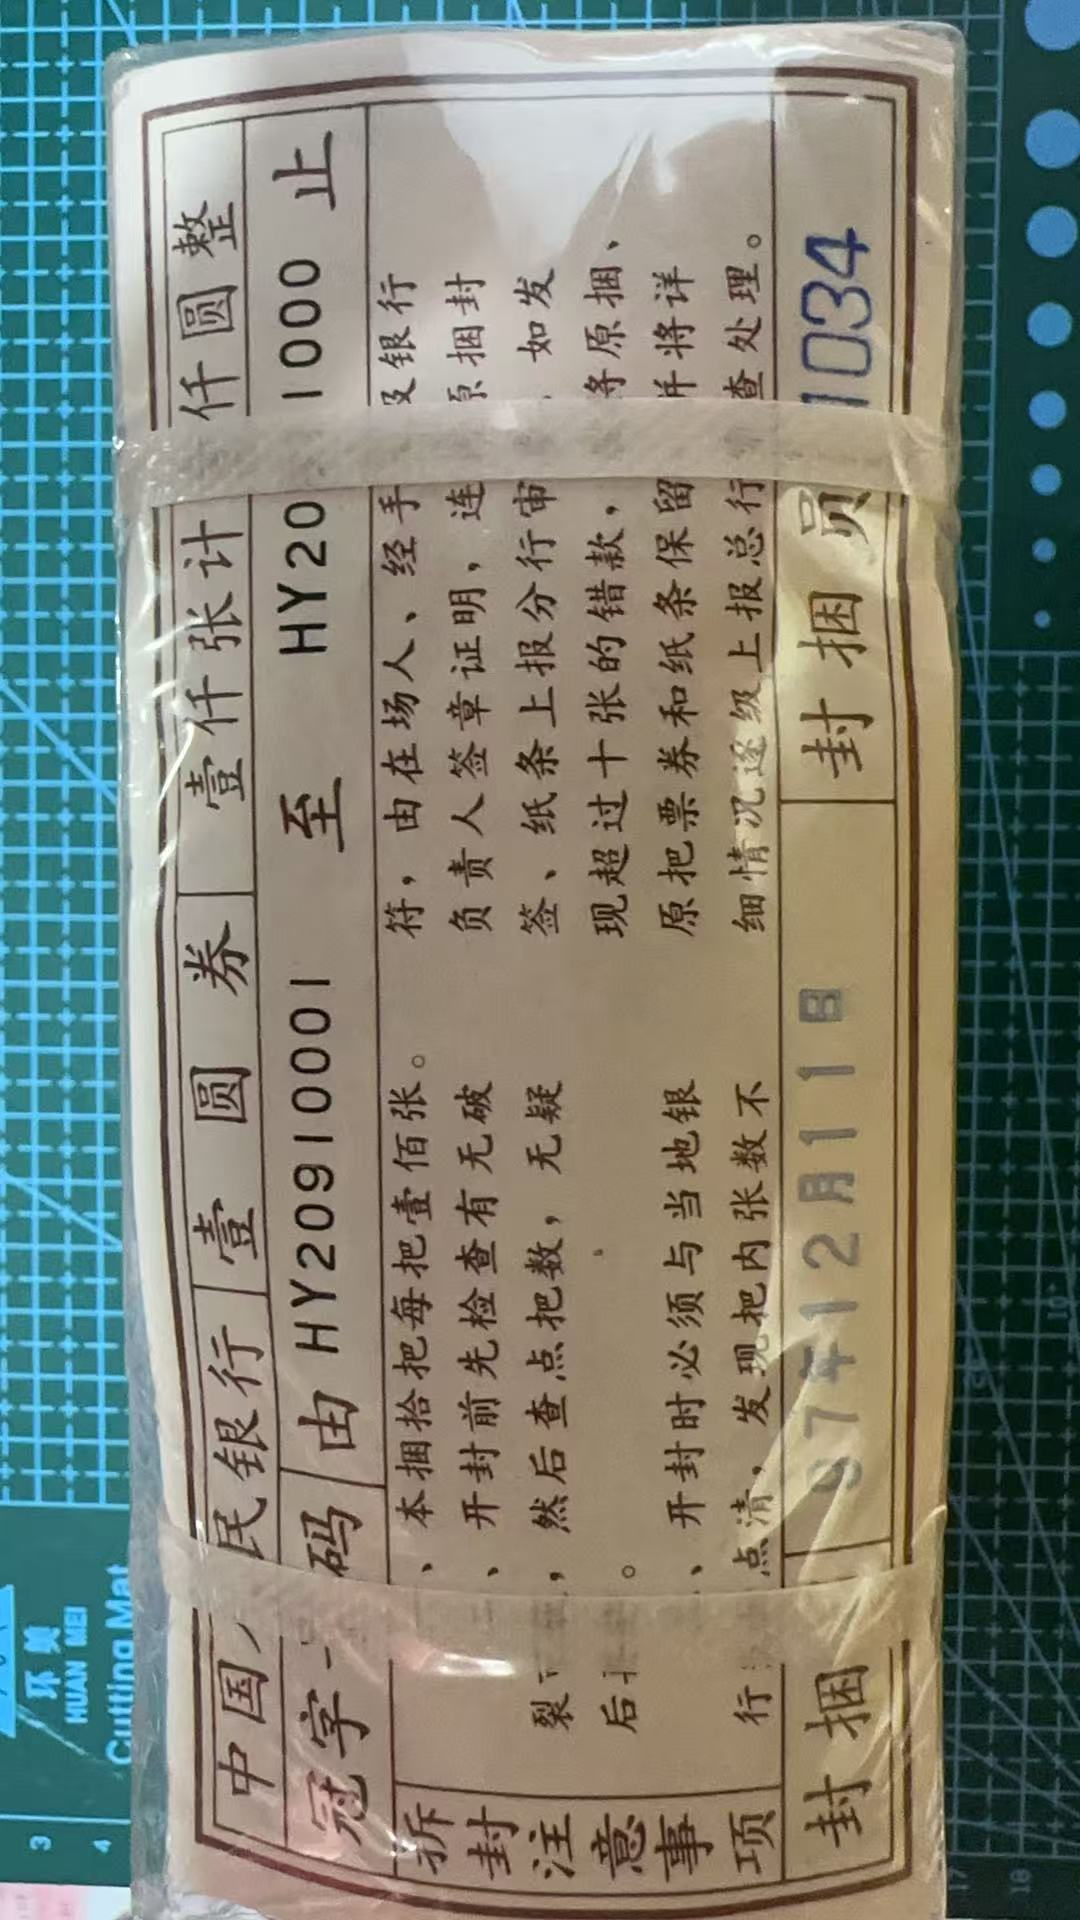 中国 民银行 壹圆券 壹仟张计 仟圆整
冠字 码 由 HY20910001 至 HY20 1000 止
拆封注意事项
、本捆拾把每把壹佰张。
、开封前先检查有无破
裂 ，然后查点把数，无疑
后 。
、开封时必须与当地银
行 点清，发现把内张数不
符，由在场人、经手 及银行
负责人签章证明，连 原捆封
签、纸条上报分行审 如发
现超过十张的错款， 将原捆、
原把票券和纸条保留 并将详
细情况逐级上报总行 查处理。
封捆 97年12月11日 封捆员 1034
环美
HUAN MEI
Cutting Mat
3
4
17
18